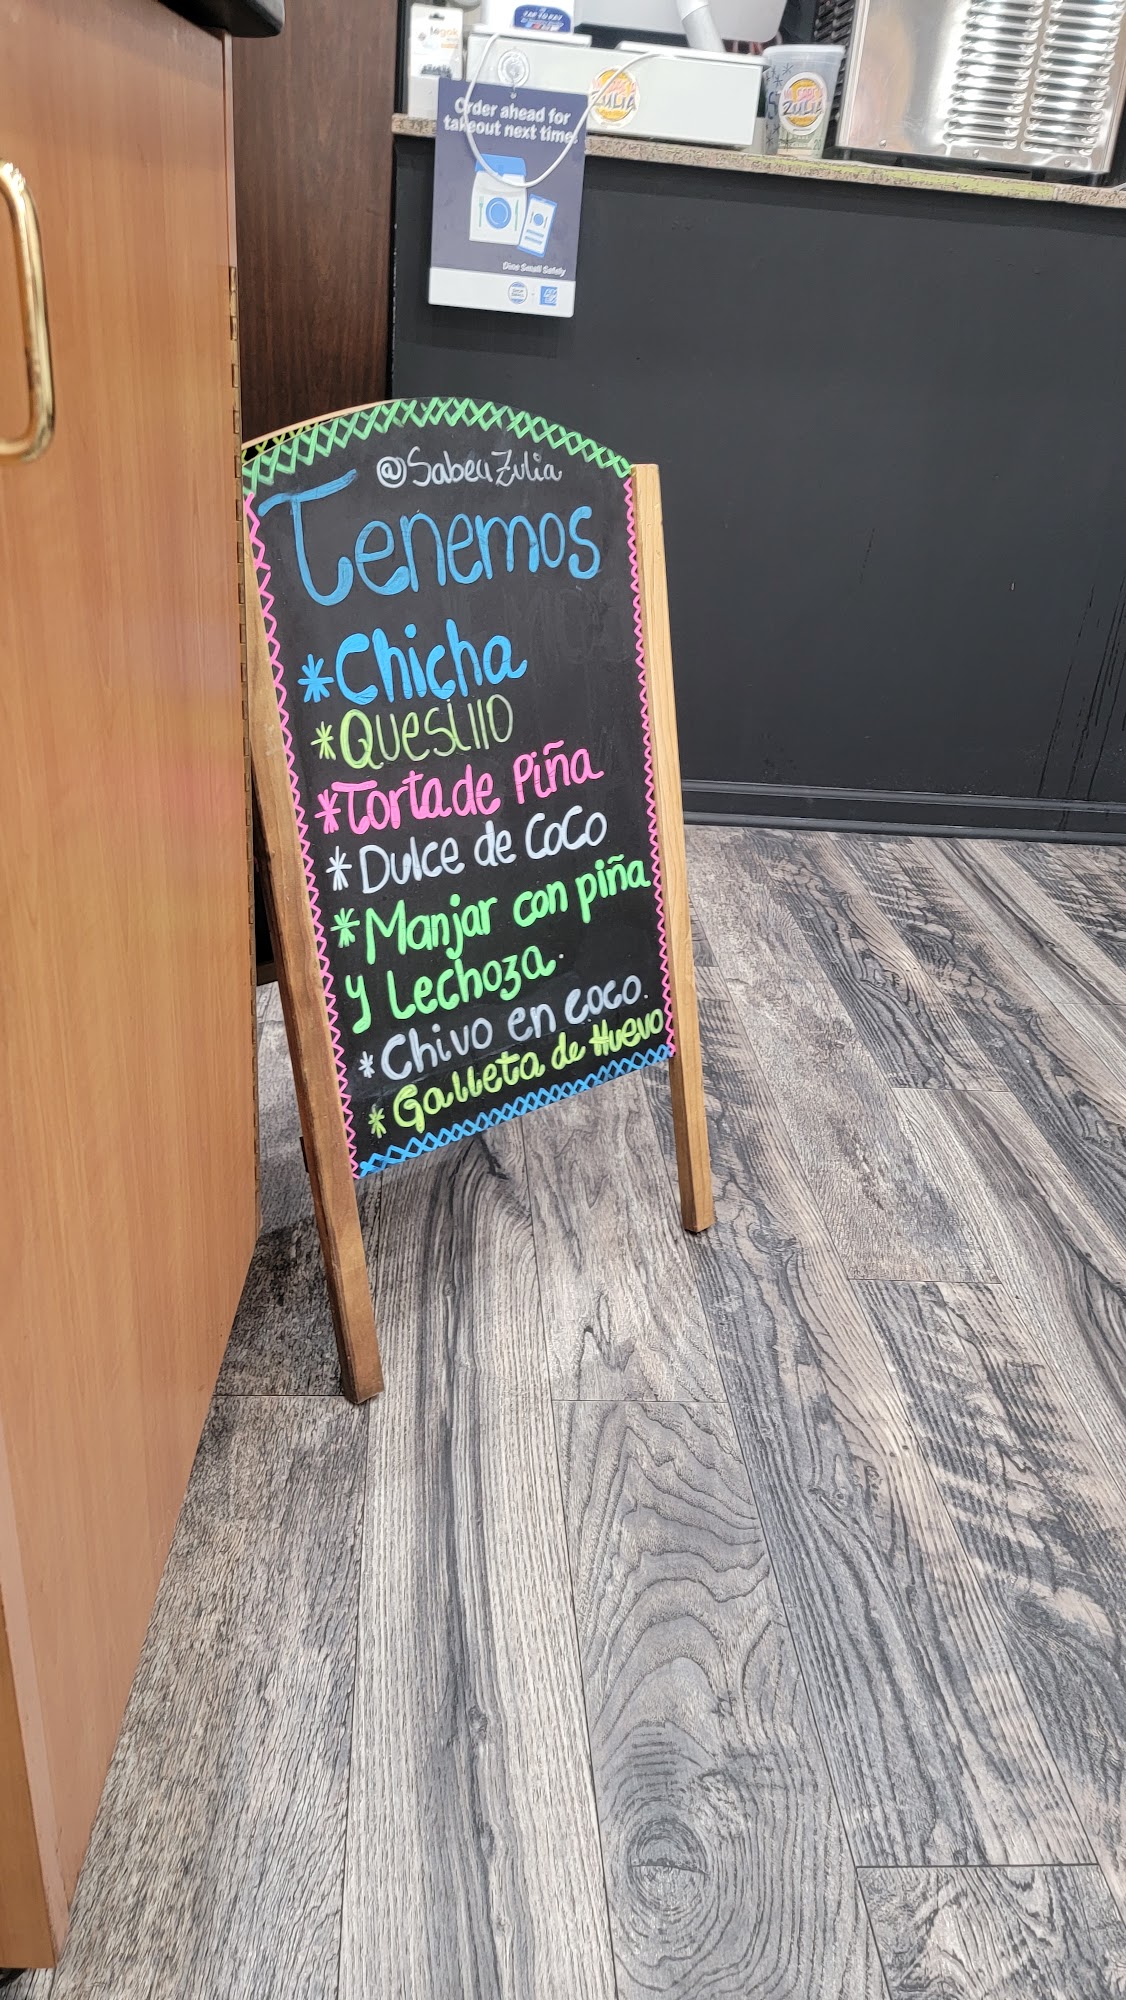 Order ahead for
takeout next time.
Dine Small Safely
ZULIA
ZULIA
@SabeuZulia
Tenemos
*Chicha
*Quesillo
*Torta de Piña
*Dulce de Coco
*Manjar con piña
y Lechoza.
*Chivo en coco.
*Galleta de Huevo